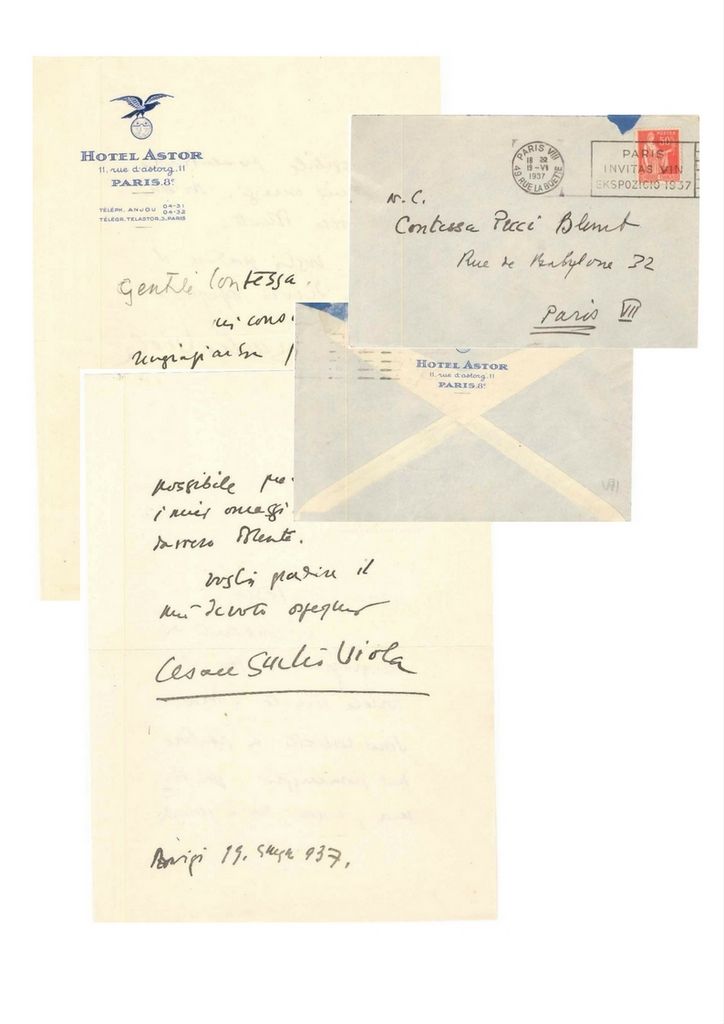 HOTEL ASTOR
11, rue d'astorg, 11
PARIS. 8ᵉ
TÉLÉPH. ANJOU 04-31
04-32
TÉLÉGR. TELASTOR.3.PARIS
Gentile Contessa,
mi cons
PARIS VIII
18 30
19-VI
1937
49 RUE LA BOËTIE
PARIS
INVITAS VIN
EKSPOZICIO 1937
POSTES
50c
N. C.
Contessa Pecci Blunt
Rue de Babylone 32
Paris VII
HOTEL ASTOR
11, rue d'astorg, 11
PARIS. 8ᵉ
possibile
i miei omaggi
davvero dolente.
voglia gradire il
mio devoto ossequio
Cesare Giulio Viola
Parigi 19. giugno 937.